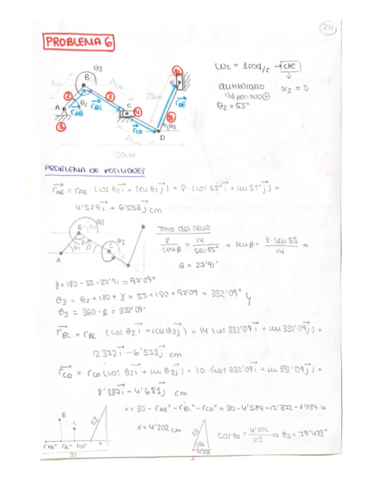 20
PROBLEMA 6
ω2 = 1 rad/s → cte
antihorario
α2 = 0
θ2 = 55°
50cm
PROBLEMA DE POSICIONES
rAB = rAB · (cos θ2 i + sen θ2 j) = 8 · (cos 55° i + sen 55° j) =
4'589 i + 6'553 j cm
Tma del seno
8 / sen β = 14 / sen 55° ⇒ sen β = 8 · sen 55 / 14 =
β = 27'91°
γ = 180 - 55 - 27'91 = 97'09°
θ3 = θ2 + 180 + γ = 55 + 180 + 97'09 = 332'09°
θ3 = 360 - β = 332'09°
rBC = rBC · (cos θ3 i + sen θ3 j) = 14 (cos 332'09 i + sen 332'09° j) =
12'372 i - 6'553 j cm
rCD = rCD (cos θ3 i + sen θ3 j) = 10 · (cos 332'09 i + sen 332'09 j) =
8'837 i - 4'681 j cm
x = 30 - rABx - rBCx - rCDx = 30 - 4'589 - 12'372 - 8'837 =
x = 4'202 cm
cos θ5 = 4'202 / 23 ⇒ θ5 = 79'473°